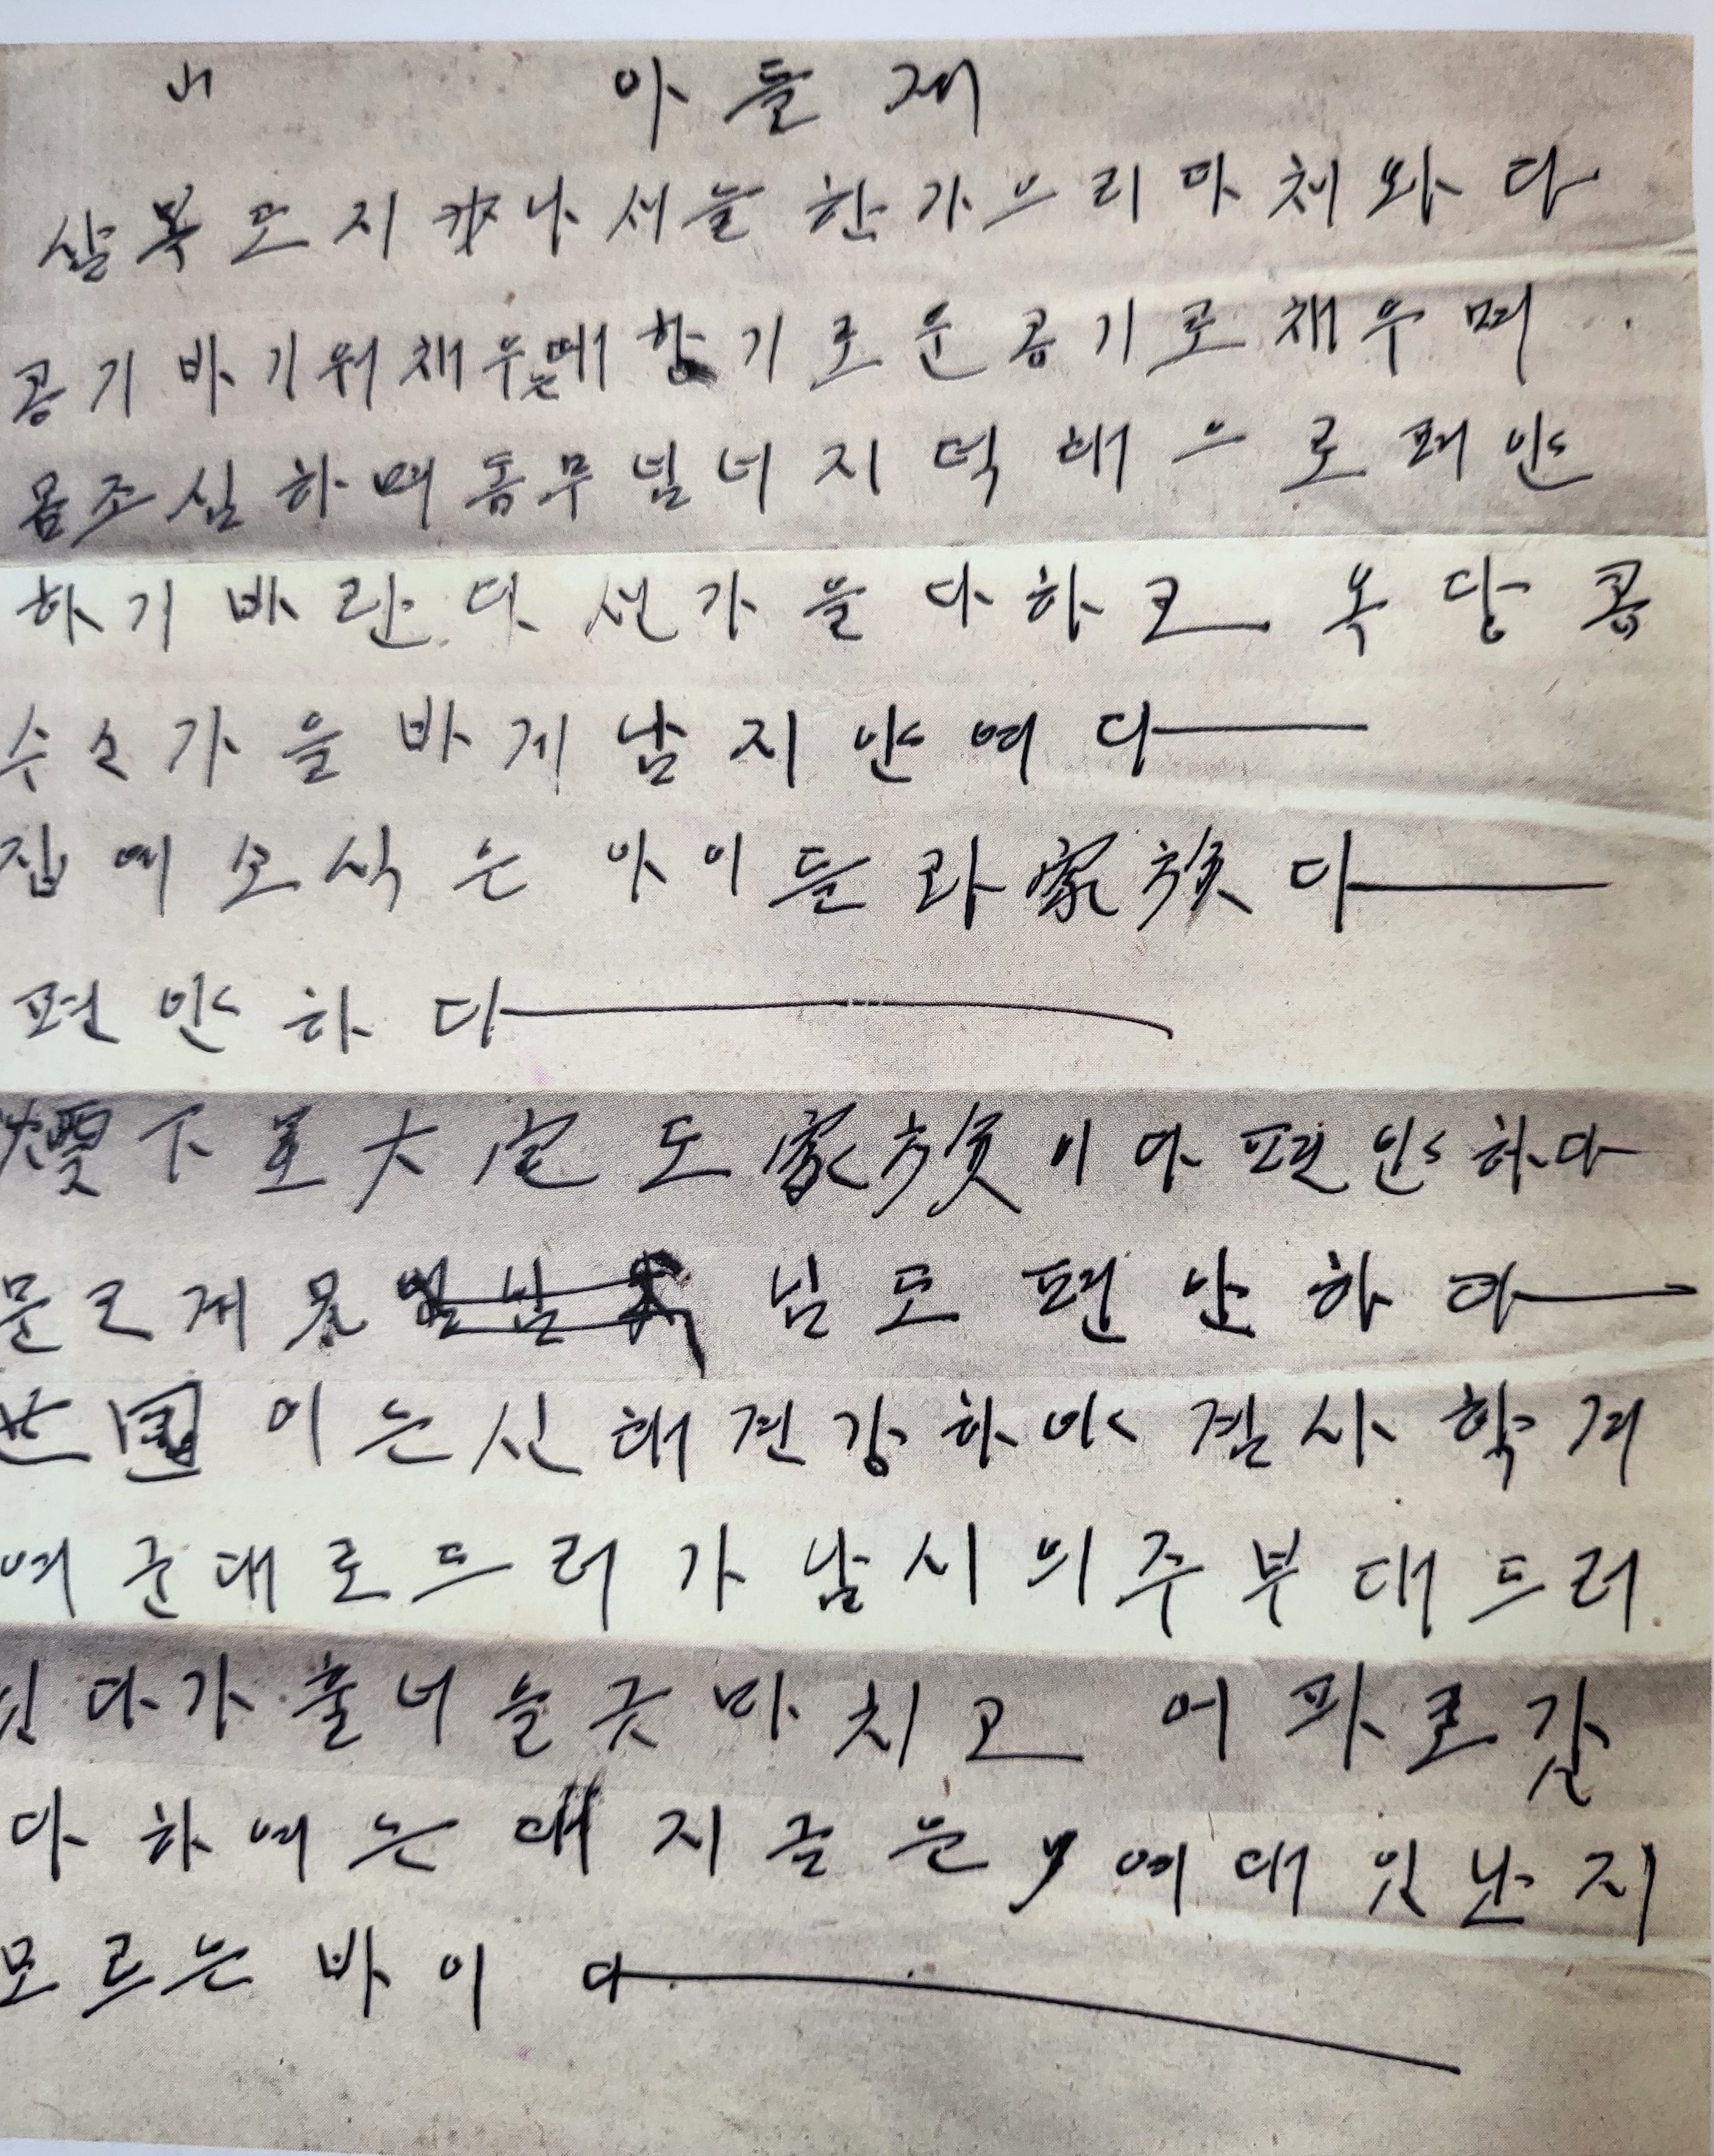 내 아들 재
삼복도 지났나 세늘한 가으리 다 체와다
공기 바기위 채우는데 향기로운 공기로 채우며
몸조심하며 동무님너지 덕태으로 펴안
하기 바란다 선가을 다하고 옥당콩
수수가을바게 남지 안여다
집에 소식은 아이들과 家族 다
편안하다
下里 大宅도 家族이 다 편안하다
문 님도 편안하다
世国이는 신태 건강하야 겸사 학겨
여 군대로 드러가 남시의주 부대 드러
다가 훌너늘 긋마치고 어파로 간
다 하여는대 지금은 여대 잇난지
모르는 바이다